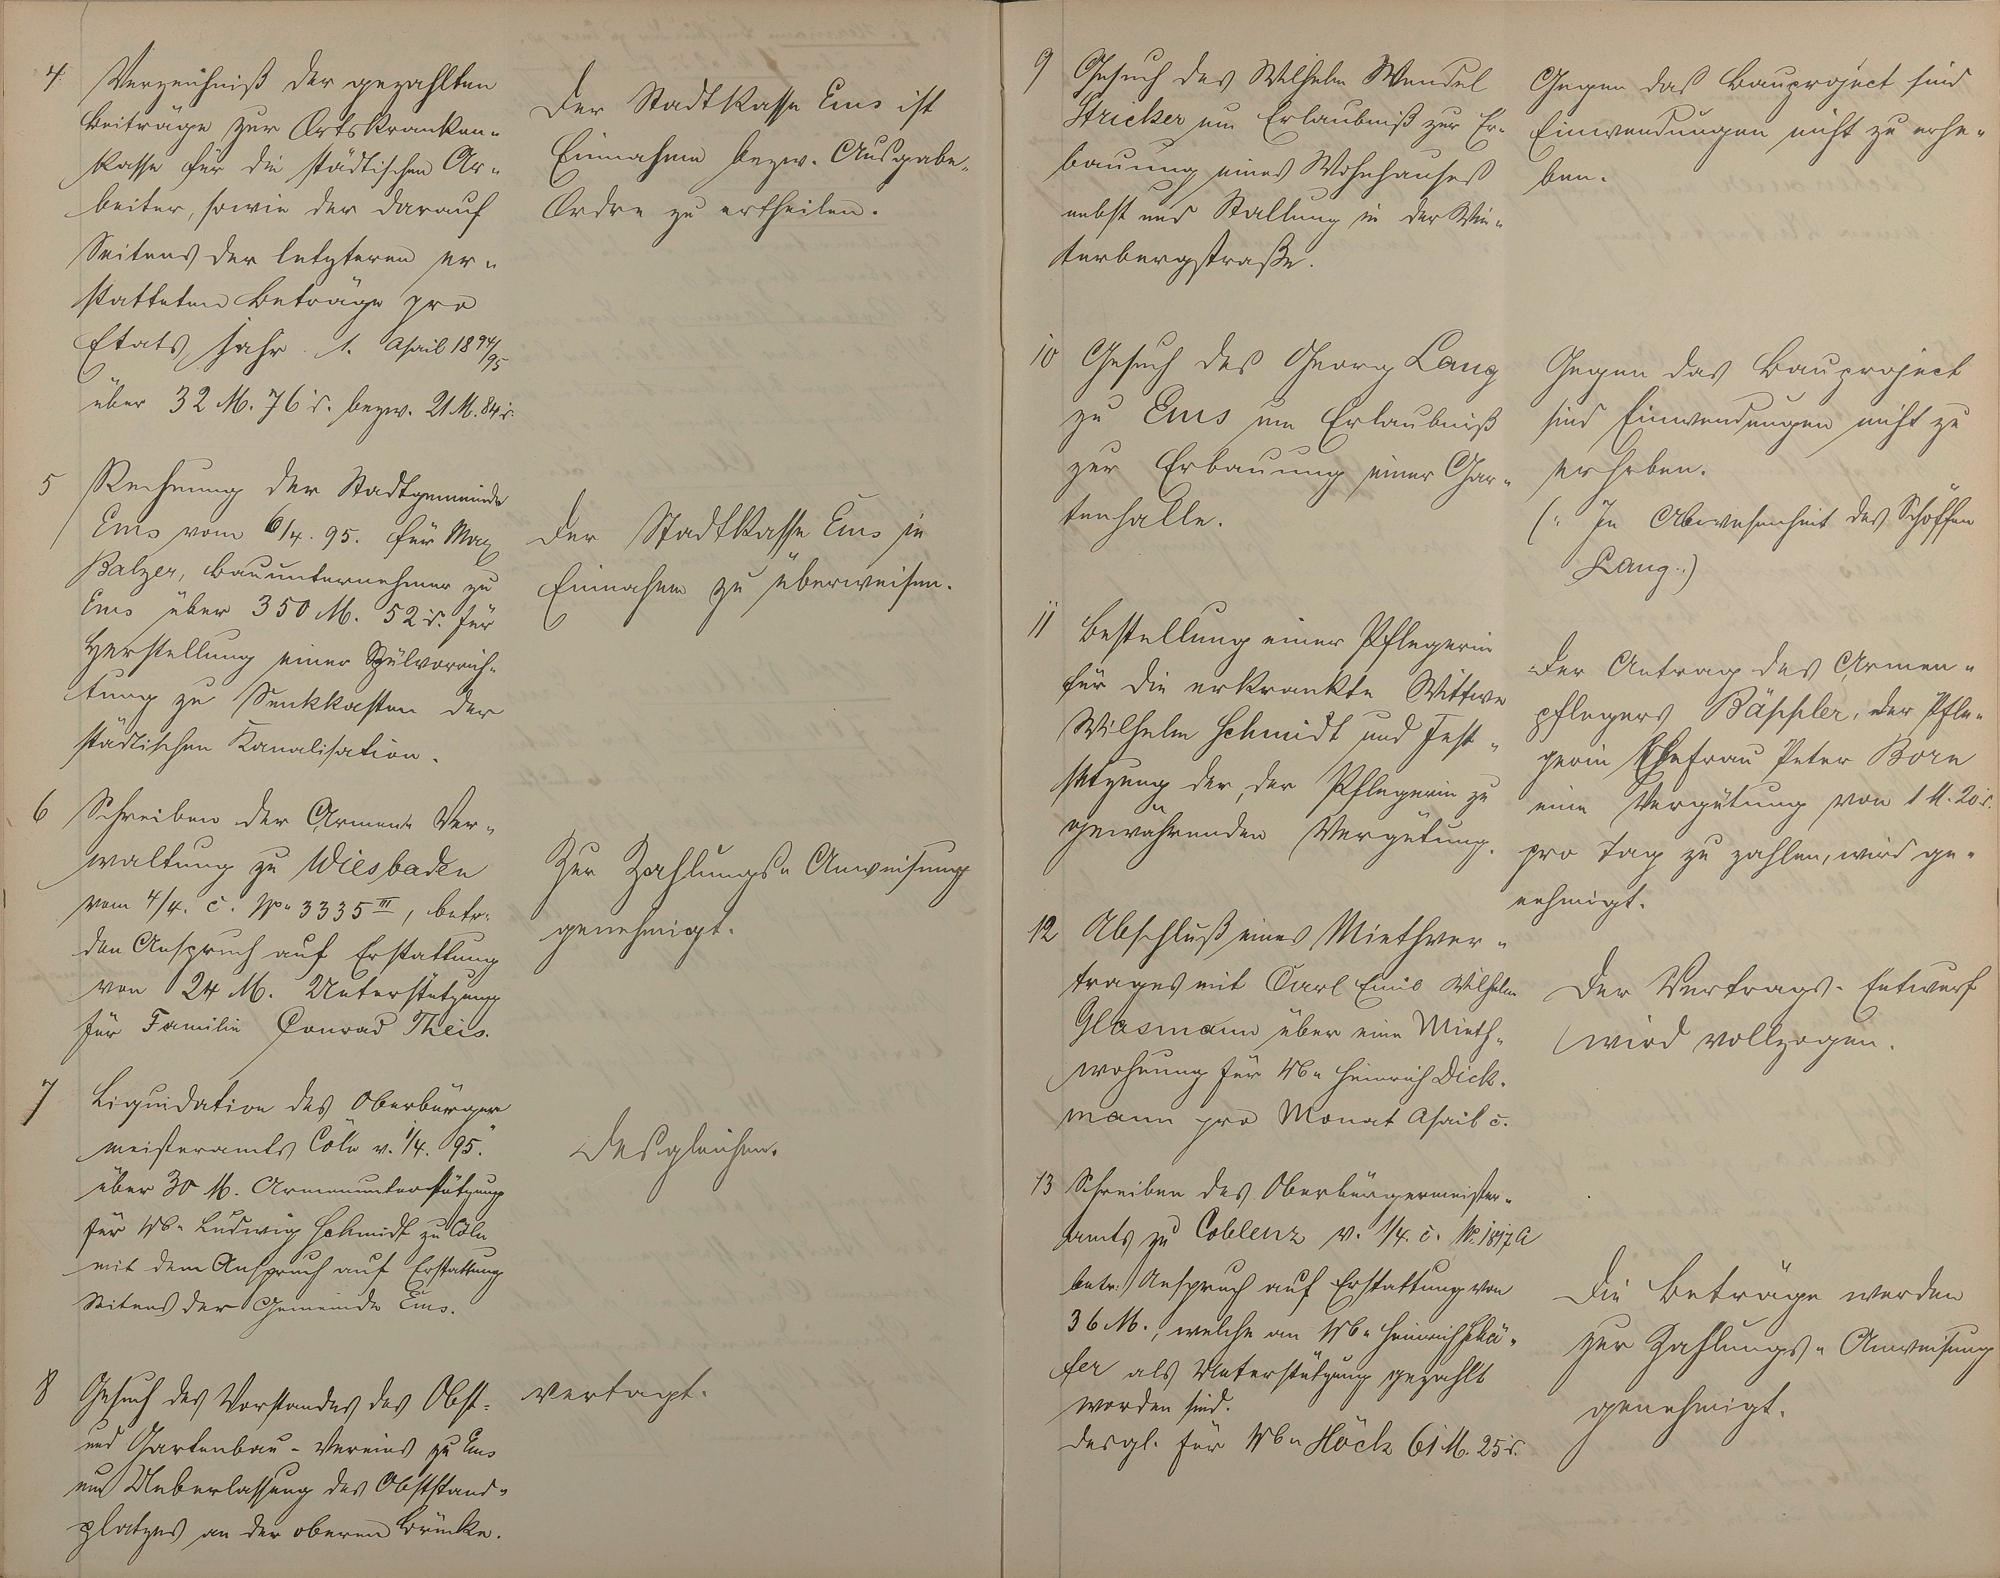 4 Verzeichniß der gezahlten
Beiträge zur Ortskranken-
kasse für die städtischen Ar-
beiter, sowie der darauf
Seitens der letzteren er-
statteten Beträge pro
Etats jahr 1. April 1894/95
über 32 M. 76 d. bezw. 21 M. 84 d.
Der Stadtkasse Ems ist
Einnahme bezw. Ausgabe-
Ordre zu ertheilen.
5 Rechnung der Stadtgemeinde
Ems vom 6/4. 95. für Max
Balzer, Bauunternehmer zu
Ems über 350 M. 52 d. für
Herstellung einer Spülvorrich-
tung zu Senkkasten der
städtischen Kanalisation.
Der Stadtkasse Ems in
Einnahme zu überweisen.
6 Schreiben der Armen- Ver-
waltung zu Wiesbaden
vom 4/4. c. No 3335 III, betr.
den Anspruch auf Erstattung
von 24 M. Unterstützung
für Familie Conrad Theis.
Zur Zahlungs- Anweisung
genehmigt.
7 Liquidation des Oberbürger
meisteramts Cöln v. 1/4. 95.
über 30 M. Armenunterstützung
für Wb. Ludwig Schmidt zu Cöln
mit dem Anspruch auf Erstattung
Seitens der Gemeinde Ems.
desgleichen.
8 Gesuch des Vorstandes des Obst-
und Gartenbau-Vereins zu Ems
um Ueberlassung des Obststand-
platzes an der oberen Brücke.
vertagt.
9 Gesuch des Wilhelm Wendel
Stricker um Erlaubniß zur Er-
bauung eines Wohnhauses
nebst und Stallung in der Win-
terbergstraße.
Gegen das Bauproject sind
Einwendungen nicht zu erhe-
ben.
10 Gesuch des Georg Lang
zu Ems um Erlaubniß
zur Erbauung einer Gar-
tenhalle.
Gegen das Bauproject
sind Einwendungen nicht zu
erheben.
(: In Abwesenheit des Schöffen
Lang.:)
11 Bestellung einer Pflegerin
für die erkrankte Wittwe
Wilhelm Schmidt und Fest-
setzung der, der Pflegerin zu
gewährenden Vergütung.
Der Antrag des Armen-
pflegers Bäppler, der Pfle-
gerin Ehefrau Peter Born
eine Vergütung von 1 M. 20 d.
pro Tag zu zahlen, wird ge-
nehmigt.
12 Abschluß eines Miethver-
trages mit Carl Emil Wilhelm
Glasmann über eine Mieth-
wohnung für Wb. Heinrich Dick-
mann pro Monat April c.
Der Vertrags-Entwurf
wird vollzogen.
13 Schreiben des Oberbürgermeister-
amts zu Coblenz v. 1/4. c. No. 1817 A
betr. Anspruch auf Erstattung von
36 M., welche an Wb. Heinrich Schä-
fer als Unterstützung gezahlt
worden sind.
desgl. für Wb. Höck 61 M. 25 d.
Die Beträge werden
zur Zahlungs- Anweisung
genehmigt.